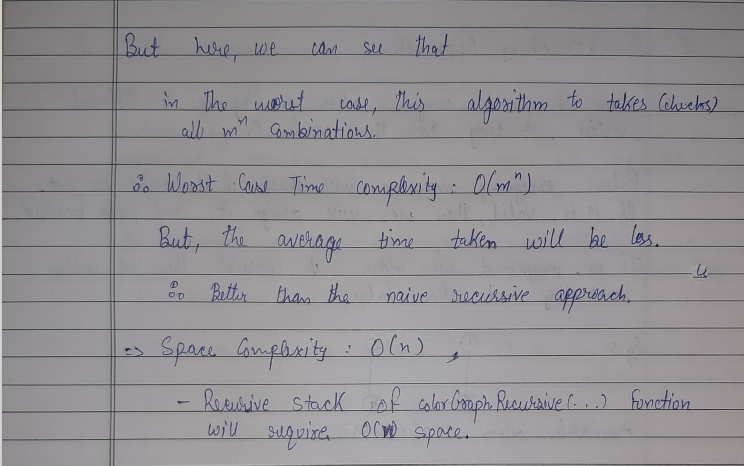 But here, we can see that
in the worst case, this algorithm to takes (checks)
all mⁿ combinations.
∴ Worst Case Time complexity : O(mⁿ)
But, the average time taken will be less.
4
∴ Better than the naive recursive approach.
⇒ Space Complexity : O(n),
- Recursive stack of colorGraphRecursive(...) function
will require O(n) space.